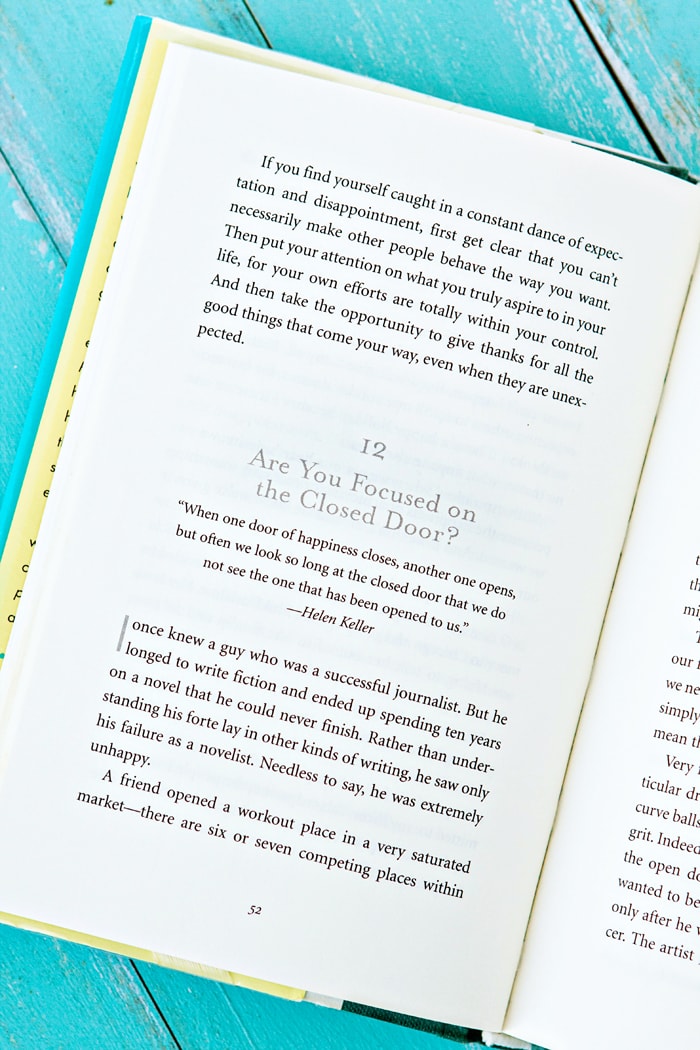 If you find yourself caught in a constant dance of expec-
tation and disappointment, first get clear that you can't
necessarily make other people behave the way you want.
Then put your attention on what you truly aspire to in your
life, for your own efforts are totally within your control.
And then take the opportunity to give thanks for all the
good things that come your way, even when they are unex-
pected.
12
Are You Focused on
the Closed Door?
“When one door of happiness closes, another one opens,
but often we look so long at the closed door that we do
not see the one that has been opened to us.”
—Helen Keller
I once knew a guy who was a successful journalist. But he
longed to write fiction and ended up spending ten years
on a novel that he could never finish. Rather than under-
standing his forte lay in other kinds of writing, he saw only
his failure as a novelist. Needless to say, he was extremely
unhappy.
A friend opened a workout place in a very saturated
market—there are six or seven competing places within
52
our
we ne
simply
mean th
Very
ticular dr
curve balls
grit. Indeed
the open de
wanted to be
only after he w
cer. The artist